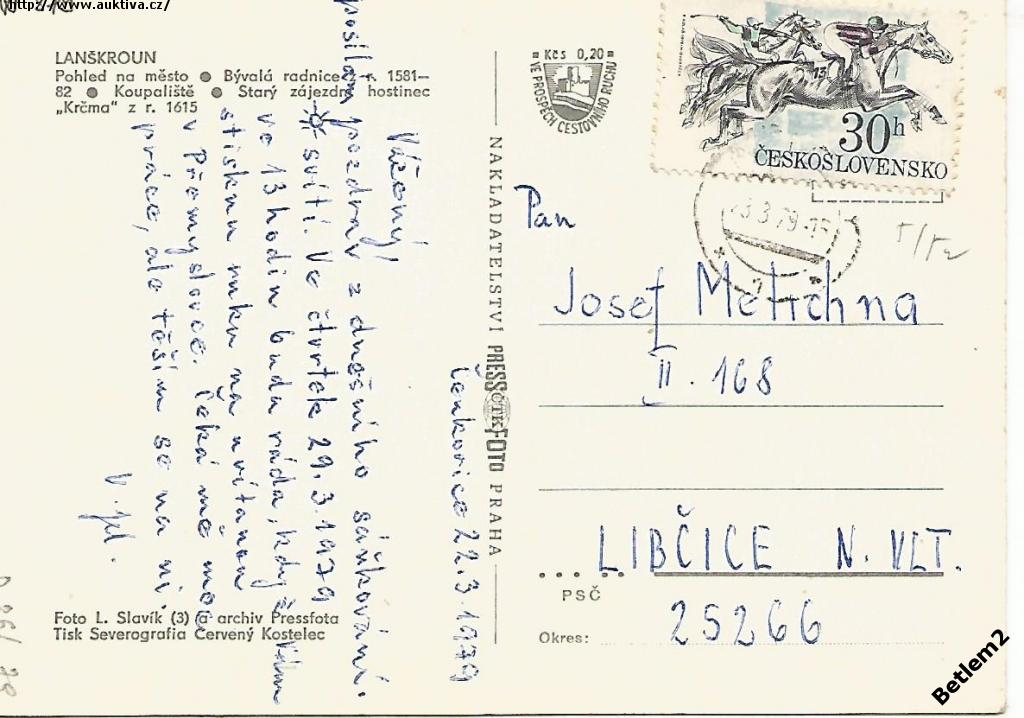 http://www.auktiva.cz/
LANŠKROUN
Pohled na město ● Bývalá radnice z r. 1581–
82 ● Koupaliště ● Starý zájezdní hostinec
„Krčma" z r. 1615
Čenkovice 22.3.1979
Vážený,
posílám pozdrav z dnešního sáňkování.
svítí. Ve čtvrtek 29.3.1979
ve 13 hodin budu ráda, když Vám
stisknu ruku na uvítanou
v Přemyslovce. Čeká mě moc
práce, ale těším se na ni.
Foto L. Slavík (3) a archiv Pressfota
Tisk Severografia Červený Kostelec
NAKLADATELSTVÍ PRESSFOTO PRAHA
ČTK
Kčs 0,20
VE PROSPĚCH CESTOVNÍHO RUCHU
13
30h
ČESKOSLOVENSKO
3.3.79
Pan
Josef
II. 168
LIBČICE N. VLT.
PSČ
25266
Okres:
Betlem2